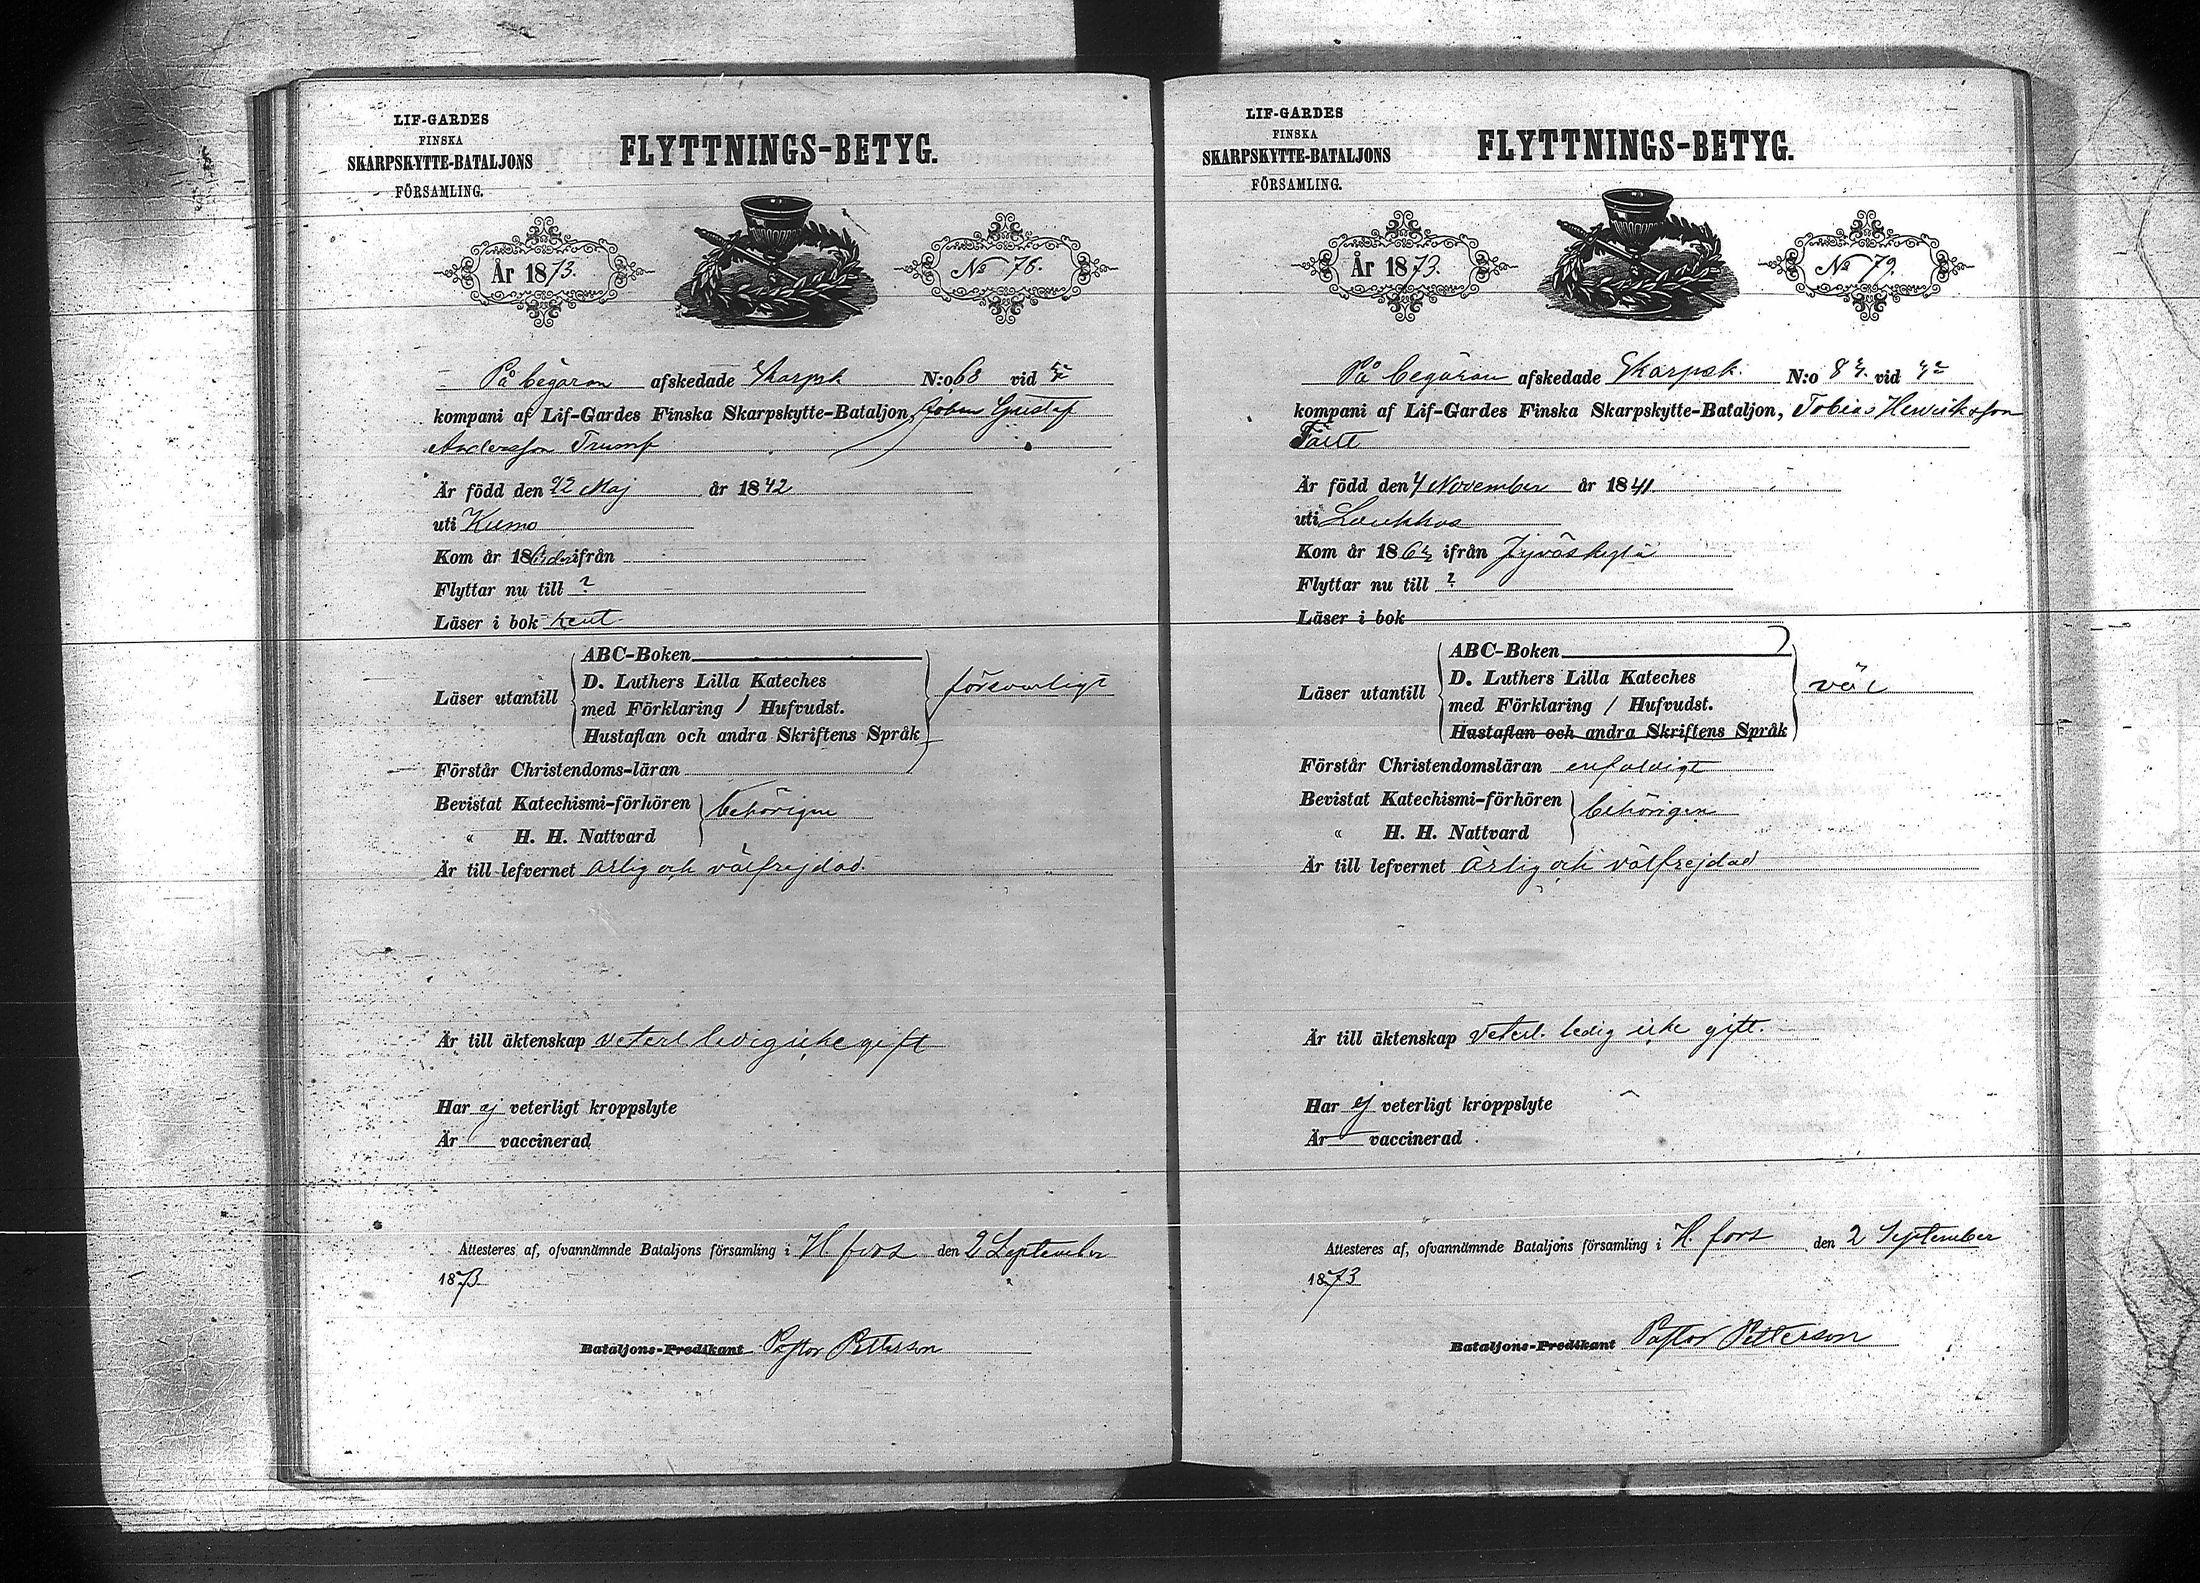 LIF-GARDES
FINSKA
SKARPSKYTTE-BATALJONS
FÖRSAMLING.
FLYTTNINGS-BETYG.
År 1873.
No 78.
På begäran afskedade Skarpsk N:o 68 vid
kompani af Lif-Gardes Finska Skarpskytte-Bataljon, Johan Gustaf
Andersson Trump
Är född den 22 Maj år 1842
uti Kumo
Kom år 186 ifrån
Flyttar nu till ?
Läser i bok rent
Läser utantill
ABC-Boken
D. Luthers Lilla Kateches
med Förklaring / Hufvudst.
Hustaflan och andra Skriftens Språk
försvarligt
Förstår Christendoms-läran
Bevistat Katechismi-förhören
" H. H. Nattvard
behörigen
Är till lefvernet ärlig och välfrejdad.
Är till äktenskap veterl. ledig icke gift
Har ej veterligt kroppslyte
Är vaccinerad
Attesteres af, ofvannämnde Bataljons församling i H fors den 2 September
1873
Bataljons-Predikant Pastor Petterson
LIF-GARDES
FINSKA
SKARPSKYTTE-BATALJONS
FÖRSAMLING.
FLYTTNINGS-BETYG.
År 1873.
No 79.
På begäran afskedade Skarpsk. N:o vid
kompani af Lif-Gardes Finska Skarpskytte-Bataljon, Tobias Henriksson
Är född den November år 1841.
uti Laukkas
Kom år 186 ifrån Jyväskylä
Flyttar nu till ?
Läser i bok
Läser utantill
ABC-Boken
D. Luthers Lilla Kateches
med Förklaring / Hufvudst.
Hustaflan och andra Skriftens Språk
väl
Förstår Christendomsläran enfaldigt
Bevistat Katechismi-förhören
" H. H. Nattvard
behörigen
Är till lefvernet ärlig och välfrejdad
Är till äktenskap veterl. ledig icke gift.
Har ej veterligt kroppslyte
Är vaccinerad
Attesteres af, ofvannämnde Bataljons församling i H. fors den 2 September
1873
Bataljons-Predikant Pastor Petterson